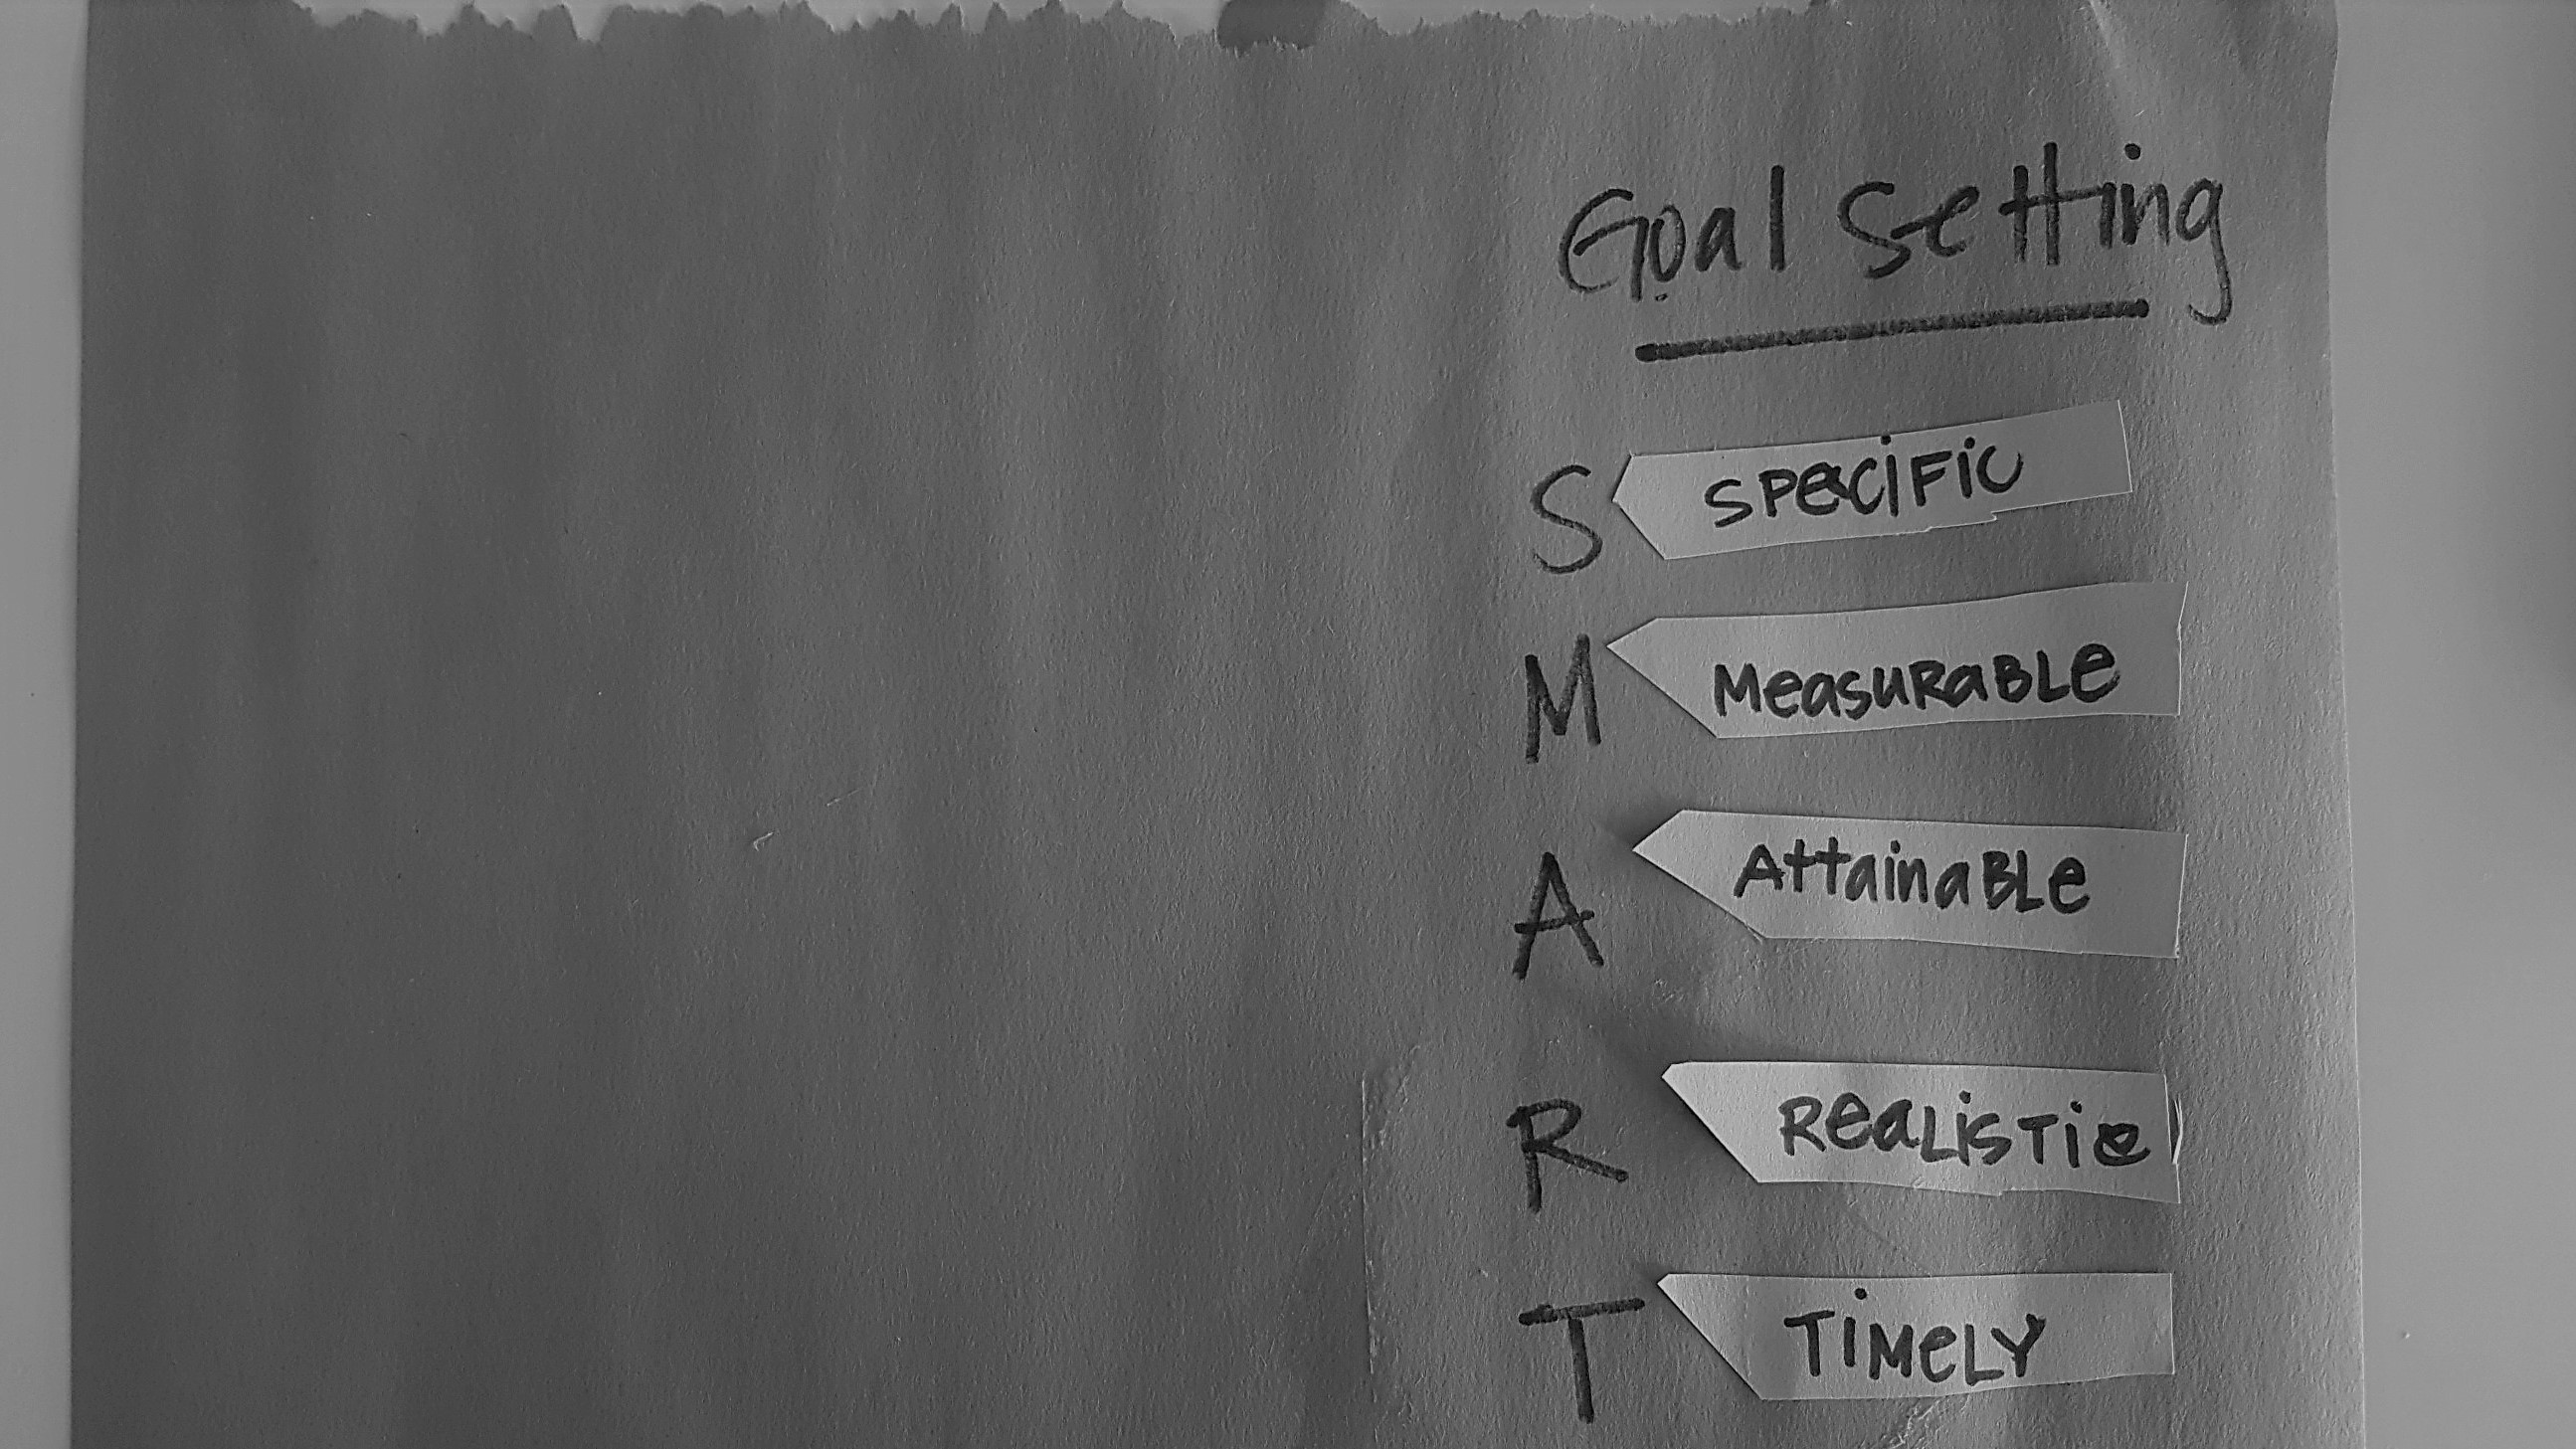 Goal Setting
S SPeCiFiC
M MeasuRaBLe
A AttainaBLe
R ReaListic
T TiMeLY